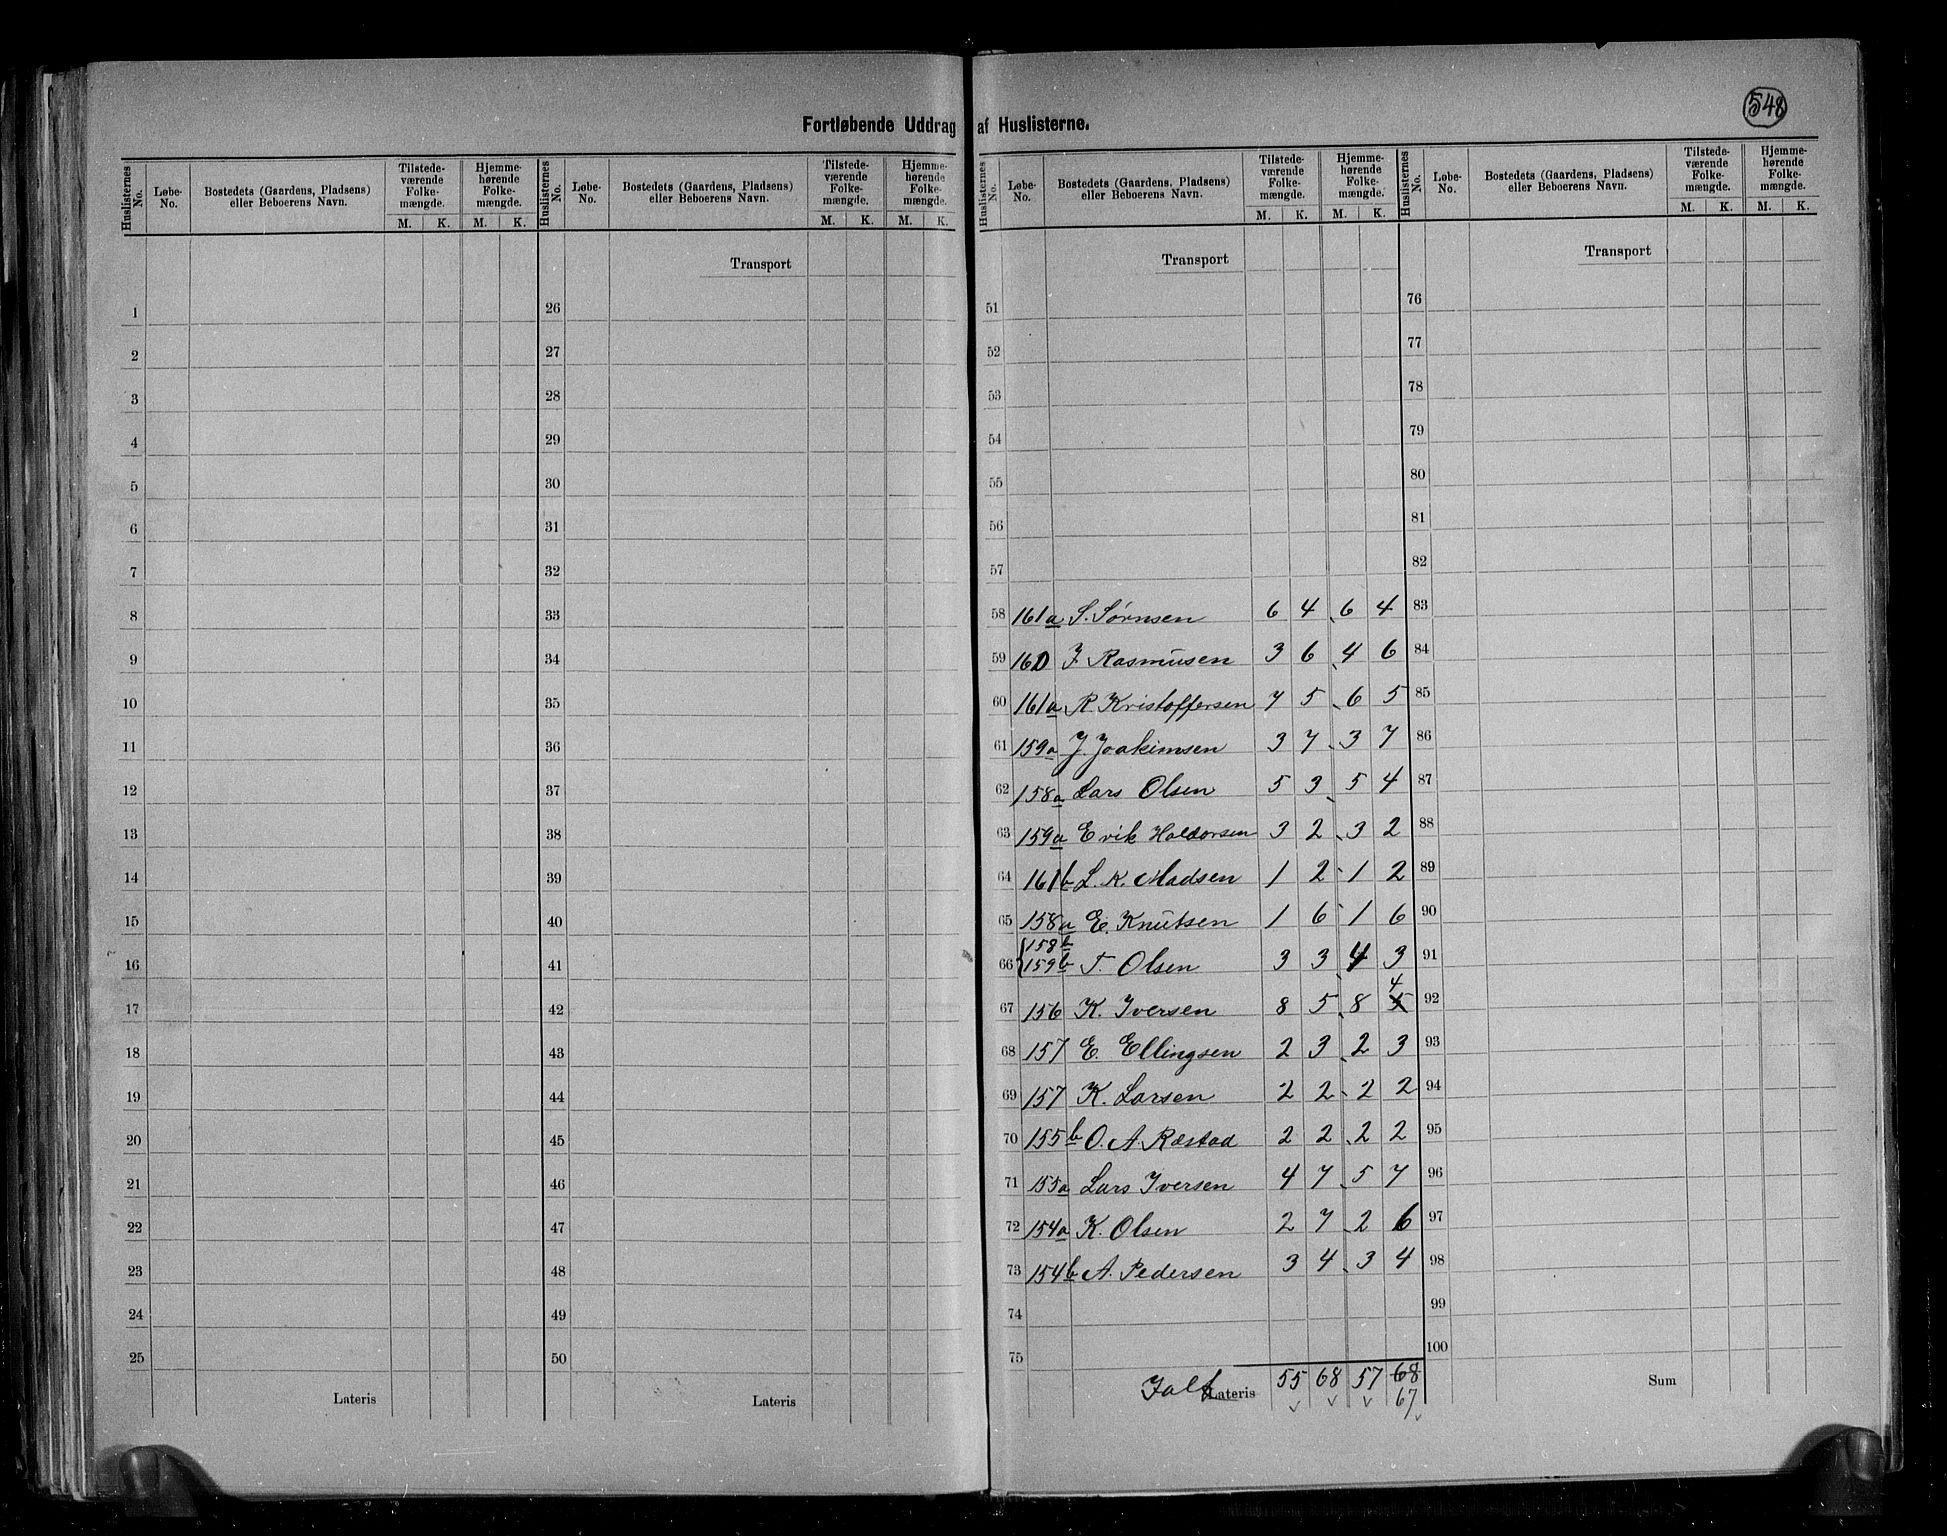 548
Fortløbende Uddrag af Huslisterne.
Huslisternes No. | Løbe-No. | Bostedets (Gaardens, Pladsens) eller Beboerens Navn. | Tilstede-værende Folke-mængde. M. K. | Hjemme-hørende Folke-mængde. M. K.
Huslisternes No. | Løbe-No. | Bostedets (Gaardens, Pladsens) eller Beboerens Navn. | Tilstede-værende Folke-mængde. M. K. | Hjemme-hørende Folke-mængde. M. K.
Huslisternes No. | Løbe-No. | Bostedets (Gaardens, Pladsens) eller Beboerens Navn. | Tilstede-værende Folke-mængde. M. K. | Hjemme-hørende Folke-mængde. M. K.
Huslisternes No. | Løbe-No. | Bostedets (Gaardens, Pladsens) eller Beboerens Navn. | Tilstede-værende Folke-mængde. M. K. | Hjemme-hørende Folke-mængde. M. K.
1
2
3
4
5
6
7
8
9
10
11
12
13
14
15
16
17
18
19
20
21
22
23
24
25
Lateris
Transport
26
27
28
29
30
31
32
33
34
35
36
37
38
39
40
41
42
43
44
45
46
47
48
49
50
Lateris
Transport
51
52
53
54
55
56
57
58 161a S. Sørnsen 6 4 6 4
59 160 J. Rasmusen 3 6 4 6
60 161a R Kristoffersen 7 5 6 5
61 159a J. Joakimsen 3 7 3 7
62 158a Lars Olsen 5 3 5 4
63 159a Erik Haldorsen 3 2 3 2
64 161b L. K. Madsen 1 2 1 2
65 158a E. Knutsen 1 6 1 6
158b
66 159b T. Olsen 3 3 4 3
4
67 156 K. Iversen 8 5 8 5
68 157 E. Ellingsen 2 3 2 3
69 157 K. Larsen 2 2 2 2
70 155b O. A. Ræstad 2 2 2 2
71 155a Lars Iversen 4 7 5 7
72 154a K. Olsen 2 7 2 6
73 154b A. Pedersen 3 4 3 4
74
75
Ialt Lateris 55 68 57 68
67
Transport
76
77
78
79
80
81
82
83
84
85
86
87
88
89
90
91
92
93
94
95
96
97
98
99
100
Sum